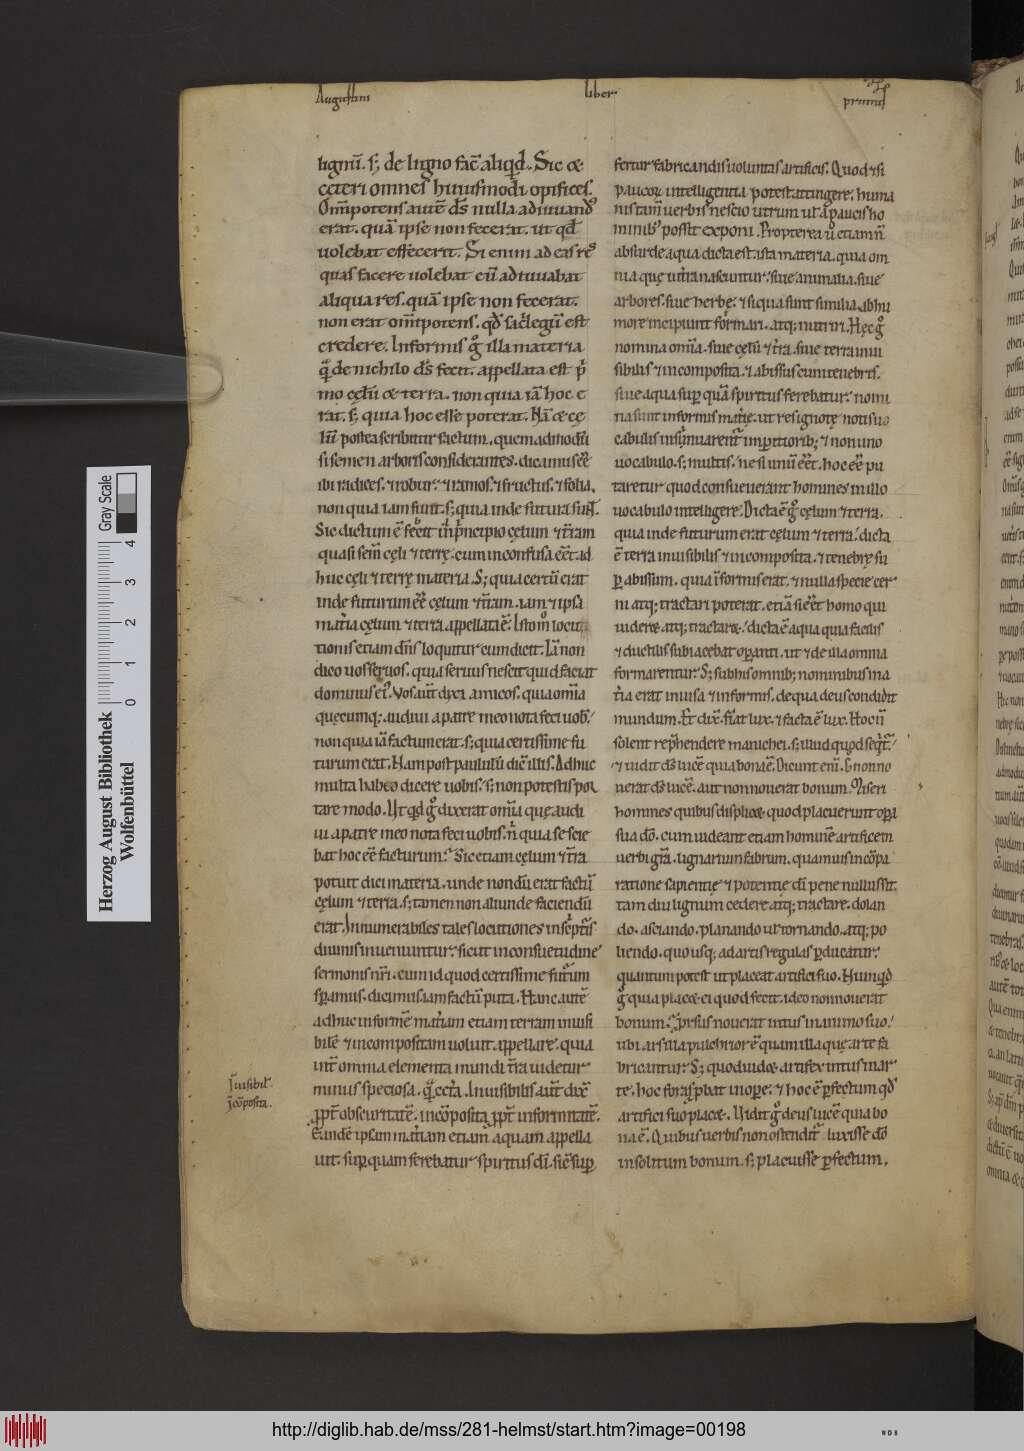 Augustini liber primus
lignū. s; de ligno fac̄ aliqd. Sic &
cęteri omnes huiusmodi opifices.
Omīpotens autē d̄s nulla re adiuuand'
erat. quā ipse non fecerat. ut qd̄
uolebat efficeret. Si enim ad eas res
quas facere uolebat eū adiuuabat
aliqua res. quā ipse non fecerat.
non erat omīpotens. qd̄ sac̄legiū est
credere. Informis g° illa materia
q̄ de nichilo d̄s fecit. appellata est p̄
mo cęlū & terra. non quia iā hoc e
rat. s; quia hoc esse poterat. Nā & cę
lū postea scribitur factum. quemadmodū
si semen arboris considerantes. dicamus eē
ibi radices. & robur. & ramos. & fructus. & folia.
non quia iam sunt. s; quia inde futura sunt.
Sic dictum ē fecit in p̄ncipio cęlum & t̄ram
quasi sem̄ cęli & terrę. cum in confusa eēt ad
huc cęli & terrę materia. S; quia certū erat
inde futurum eē cęlum & t̄ram. iam & ipsa
mat̄ia cęlum & terra appellata ē. Isto m° locu
tionis etiam dn̄s loquitur cum dicit. Iā non
dico uos seruos. quia seruus nescit quid faciat
dominus ei'. Vos aūt dixi amicos. quia om̄ia
quęcumq; audiui a patre meo nota feci uob.
non quia iā factum erat. s; quia certissime fu
turum erat. Nam post paululū dic̄ illis. Adhuc
multa habeo dicere uobis. s; non potestis por
tare modo. Ut qd g° dixerat om̄ia quę audi
ui a patre meo nota feci uobis. n̄ quia se scie
bat hoc eē facturum. Sic etiam cęlum & t̄ra
potuit dici materia. unde nondū erat factū
cęlum & terra. s; tamen non aliunde faciendū
erat. Innumerabiles tales locutiones in sc̄pt̄is
diuinis inueniuntur. sicut in consuetudine
sermonis nr̄i. cum id quod certissime fut̄um
sp̄amus. dicimus. iam factū puta. Hanc autē
adhuc informē mat̄iam etiam terram inuisi
bilē & incompositam uoluit appellare. quia
int̄ omnia elementa mundi t̄ra uidetur
minus speciosa. q̄ cet̄a. Inuisibilis aūt dix̄
pp̄t obscuritatē. incōposita pp̄t informitatē.
Eandē ipsam mat̄iam etiam aquam appella
uit. sup̱ quam ferebatur spiritus dī. sic sup̱
Inuisibil'
Incōposita.
fertur fabricandis uoluntas artificis. Quod & si
paucor̄ intelligentia potest attingere. huma
nis tam̄ uerbis nescio utrum uł a paucis ho
minib' possit exponi. Propterea ū etiam n̄
absurde aqua dicta est ista materia. quia om
nia quę in t̄ra nascuntur. siue animalia. siue
arbores. siue herbę. & si qua sunt similia. ab hu
more incipiunt formari. atq; nutriri. Hęc g°
nomina om̄ia. siue cęlū & t̄ra. siue terra inui
sibilis & incomposita. & abissus cum tenebris.
siue aqua sup̱ quā spiritus ferebatur. nomi
na sunt informis mat̄ię. ut res ignotę notis uo
cabulis insinuarent̄ imp̱itiorib; & non uno
uocabulo. s; multis. ne si unū eēt. hoc eē pu
taretur quod consueuerant homines in illo
uocabulo intelligere. Dicta ē g° cęlum & terra.
quia inde futurum erat cęlum & terra. dicta
ē terra inuisibilis & incomposita. & tenebrę su
p̱ abissum. quia īformis erat. & nulla specie cer
ni atq; tractari poterat. etiā si eēt homo qui
uideret. atq; tractaret. dicta ē aqua quia facilis
& ductilis subiacebat op̱anti. ut & de illa omnia
formarentur. S; sub his omnib; nominibus ma
t̄ia erat inuisa & informis. de qua deus condidit
mundum. Et dix̄. fiat lux. & facta ē lux. Hoc n̄
solent rep̄hendere manichei. s; illud quod seq̄t̄.
& uidit d̄s lucē quia bona ē. Dicunt enī. & non no
uerat d̄s lucē. aut non nouerat bonum. Miseri
homines quibus displicet quod placuerunt op̱a
sua dō. cum uideant etiam hominē artificem
uerbi grā. lignarium fabrum. quamuis in cōpa
ratione sapientię & potentię dī pene nullus sit.
tam diu lignum cedere atq; tractare. dolan
do. asciando. planando uł tornando. atq; po
liendo. quousq; ad artis regulas p̱ducatur.
quantum potest ut placeat artifici suo. Numqd
g° quia placet ei quod fecit. ideo non nouerat
bonum. Prorsus nouerat intus in animo suo.
ubi ars illa pulchrior ē quam illa quę arte fa
bricantur. S; quod uidet artifex intus in ar
te. hoc foris p̱bat in op̱e. & hoc ē p̱fectum qd̄
artifici suo placet. Uidit g° deus lucē quia bo
na ē. Quibus uerbis non ostendit̄ luxisse dō
insolitum bonum. s; placuisse p̱fectum.
Herzog August Bibliothek
Wolfenbüttel
Gray Scale
0 1 2 3 4
http://diglib.hab.de/mss/281-helmst/start.htm?image=00198
WDB